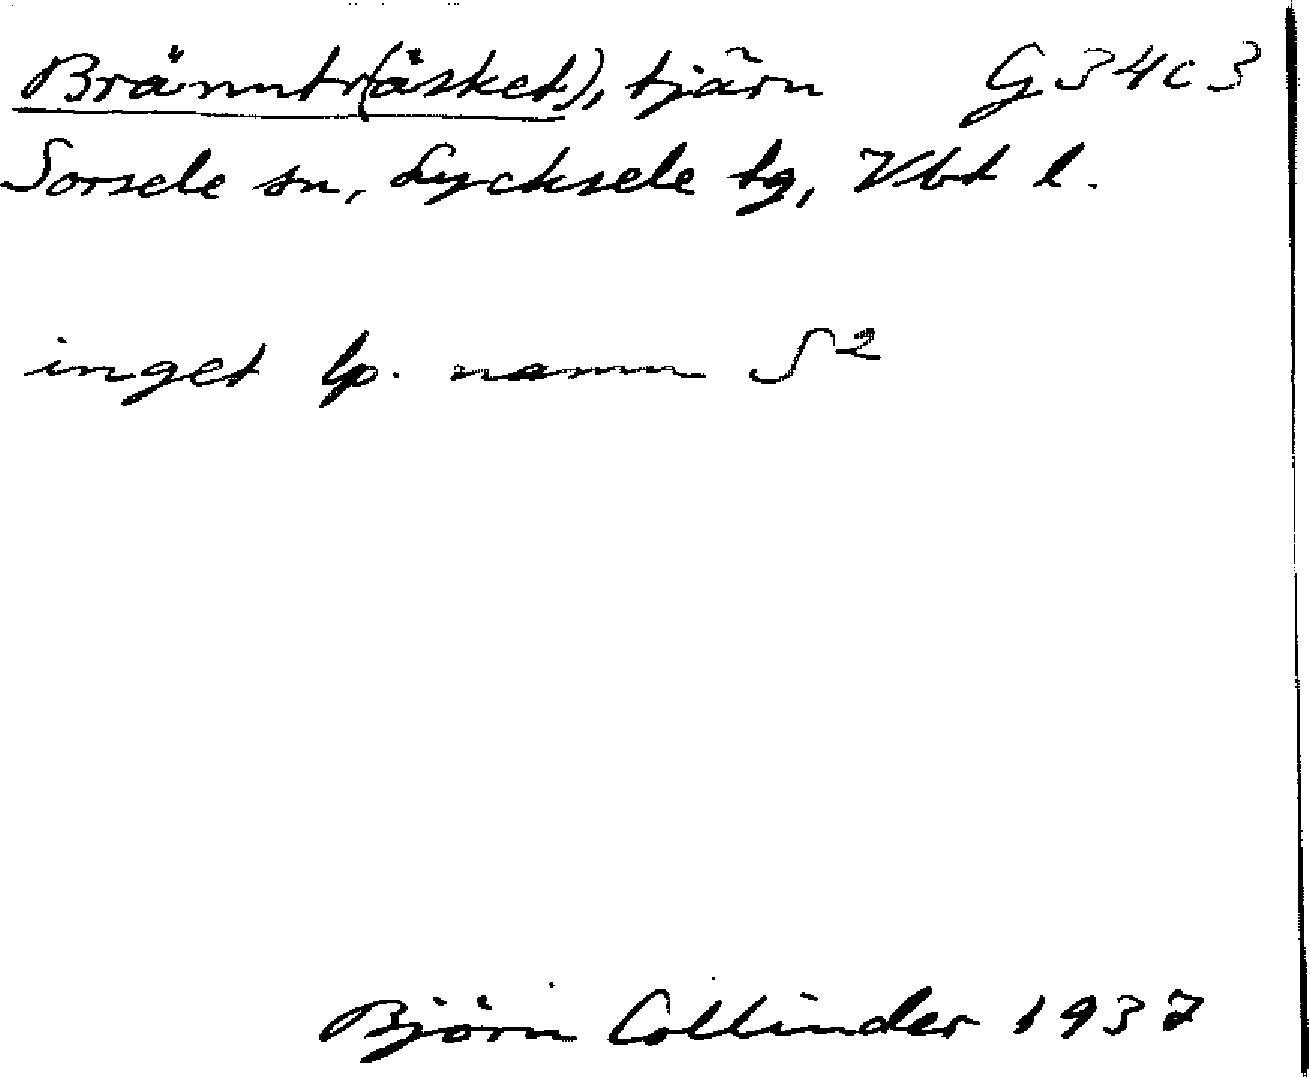 Bränntr(äsket), tjärn G 34c3
Sorsele sn, Lycksele lg, Vbt l.
inget lp. namn S²
Björn Collinder 1937